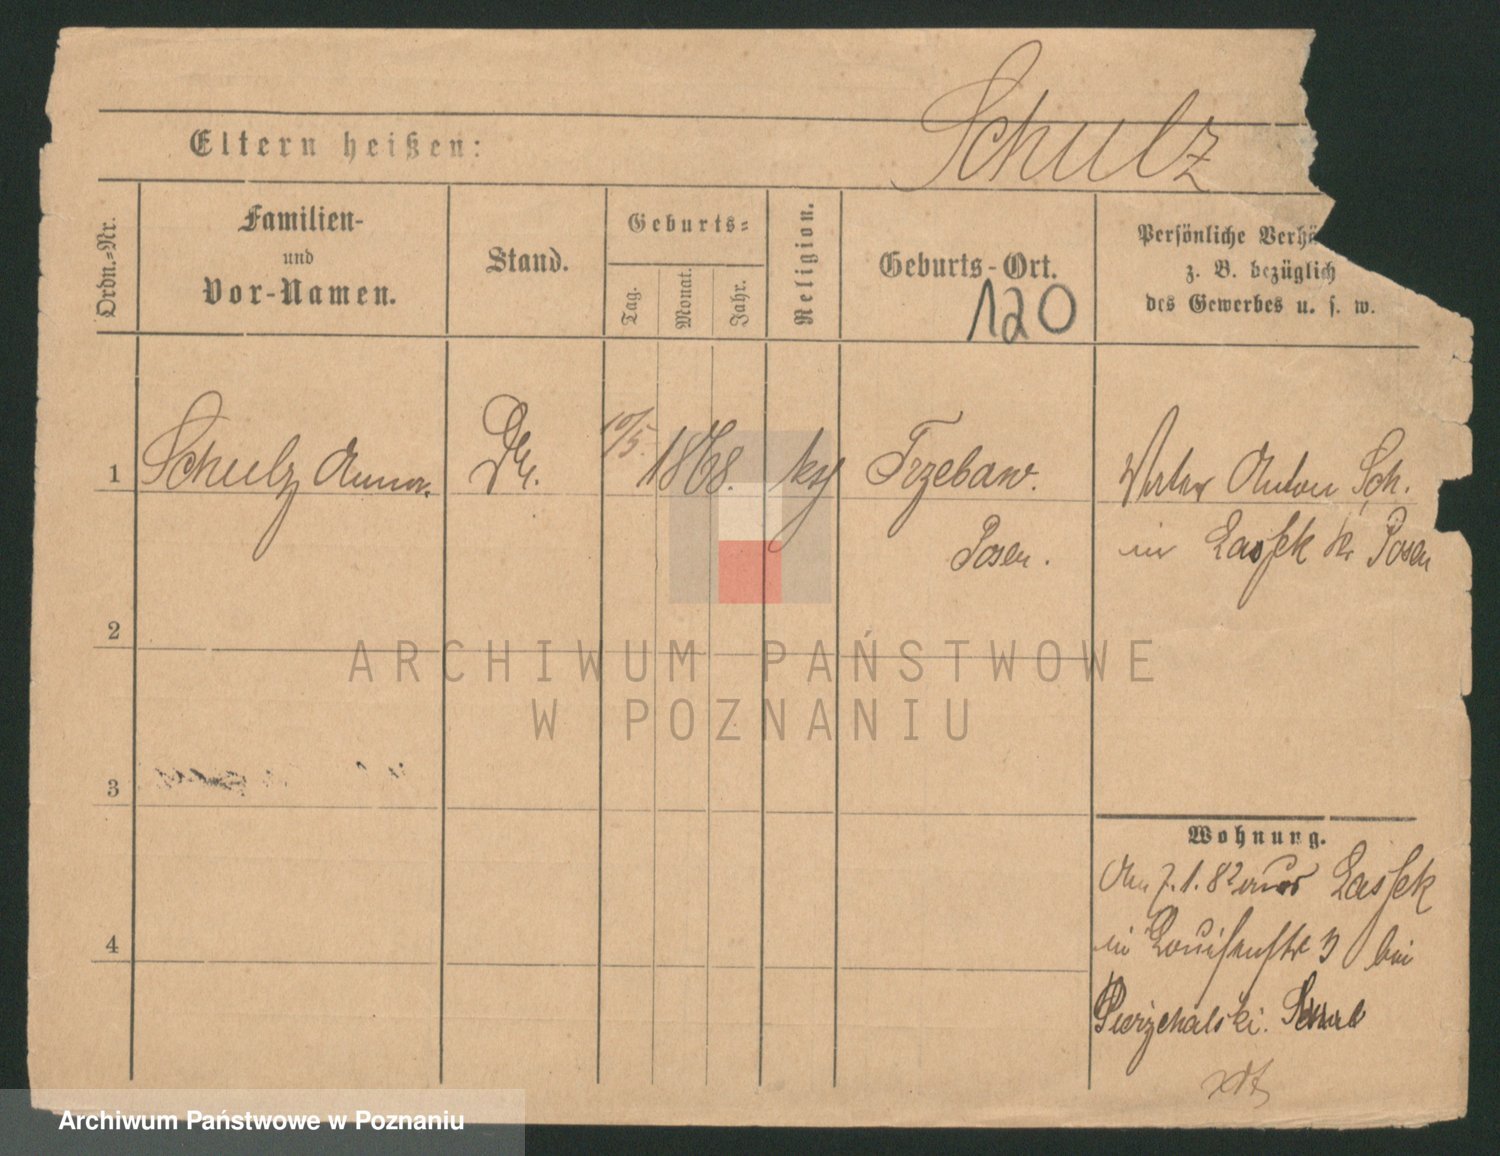 Schulz
Eltern heißen:
Ordn.-Nr.
Familien-
und
Vor-Namen.
Stand.
Geburts-
Tag.
Monat.
Jahr.
Religion.
Geburts-Ort.
120
Persönliche Verhä
z. B. bezüglich
des Gewerbes u. s. w.
1
Schulz Anna.
10/5.
1868.
Trzebaw.
Posen.
Vater Anton Sch.
in Lassek Kr Posen
2
ARCHIWUM PAŃSTWOWE
W POZNANIU
3
4
Wohnung.
Am 7.1.82 aus Lassek
in Louisenstr 3 bei
Pierzchalski.
Archiwum Państwowe w Poznaniu